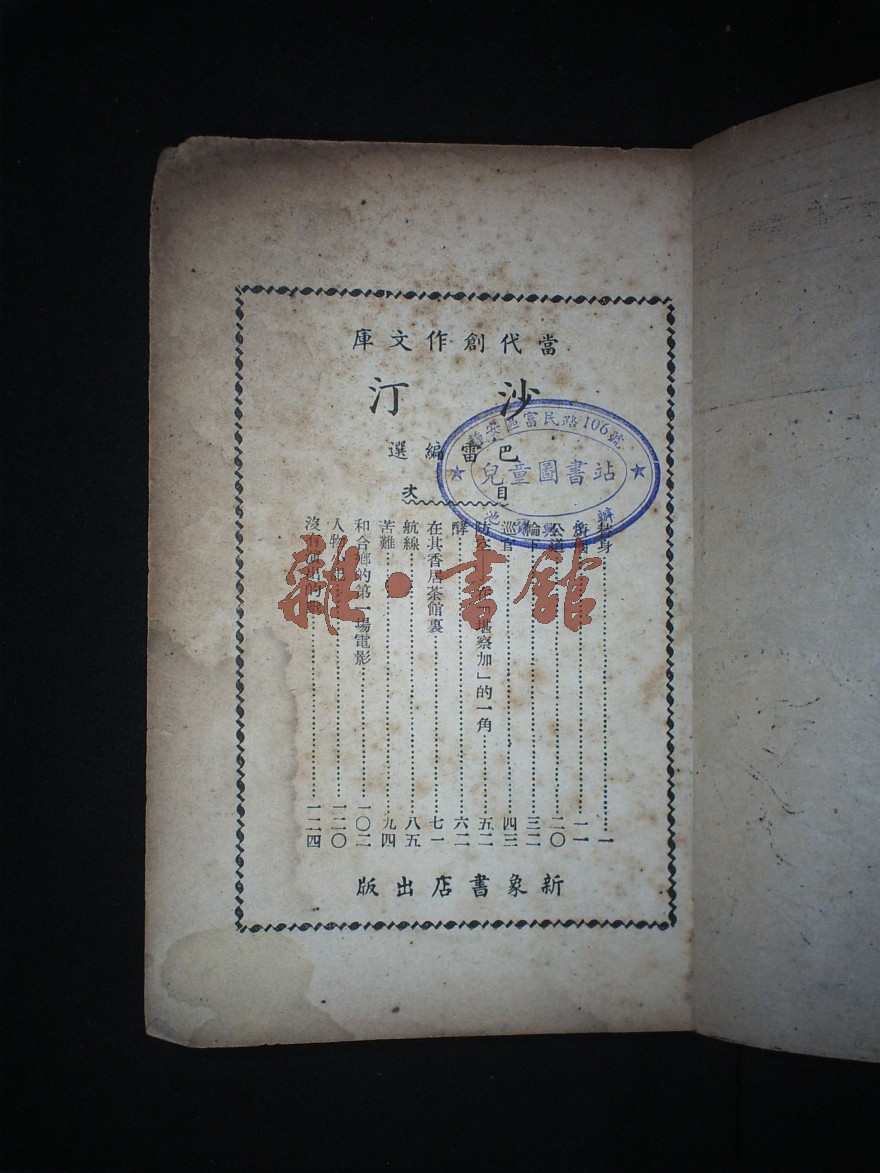 當代創作文庫
沙汀
巴雷編選
目次
一
一一
公道 二〇
輪下 三二
巡官 四三
堪察加」的一角 五二
酵 六二
在其香居茶館裏 七一
航線 八五
苦難 九四
和合鄉的第一場電影 一〇二
人物小記 一二〇
沒有 的 一二四
新象書店出版
靜安區富民路106號
兒童圖書站
雜·書館